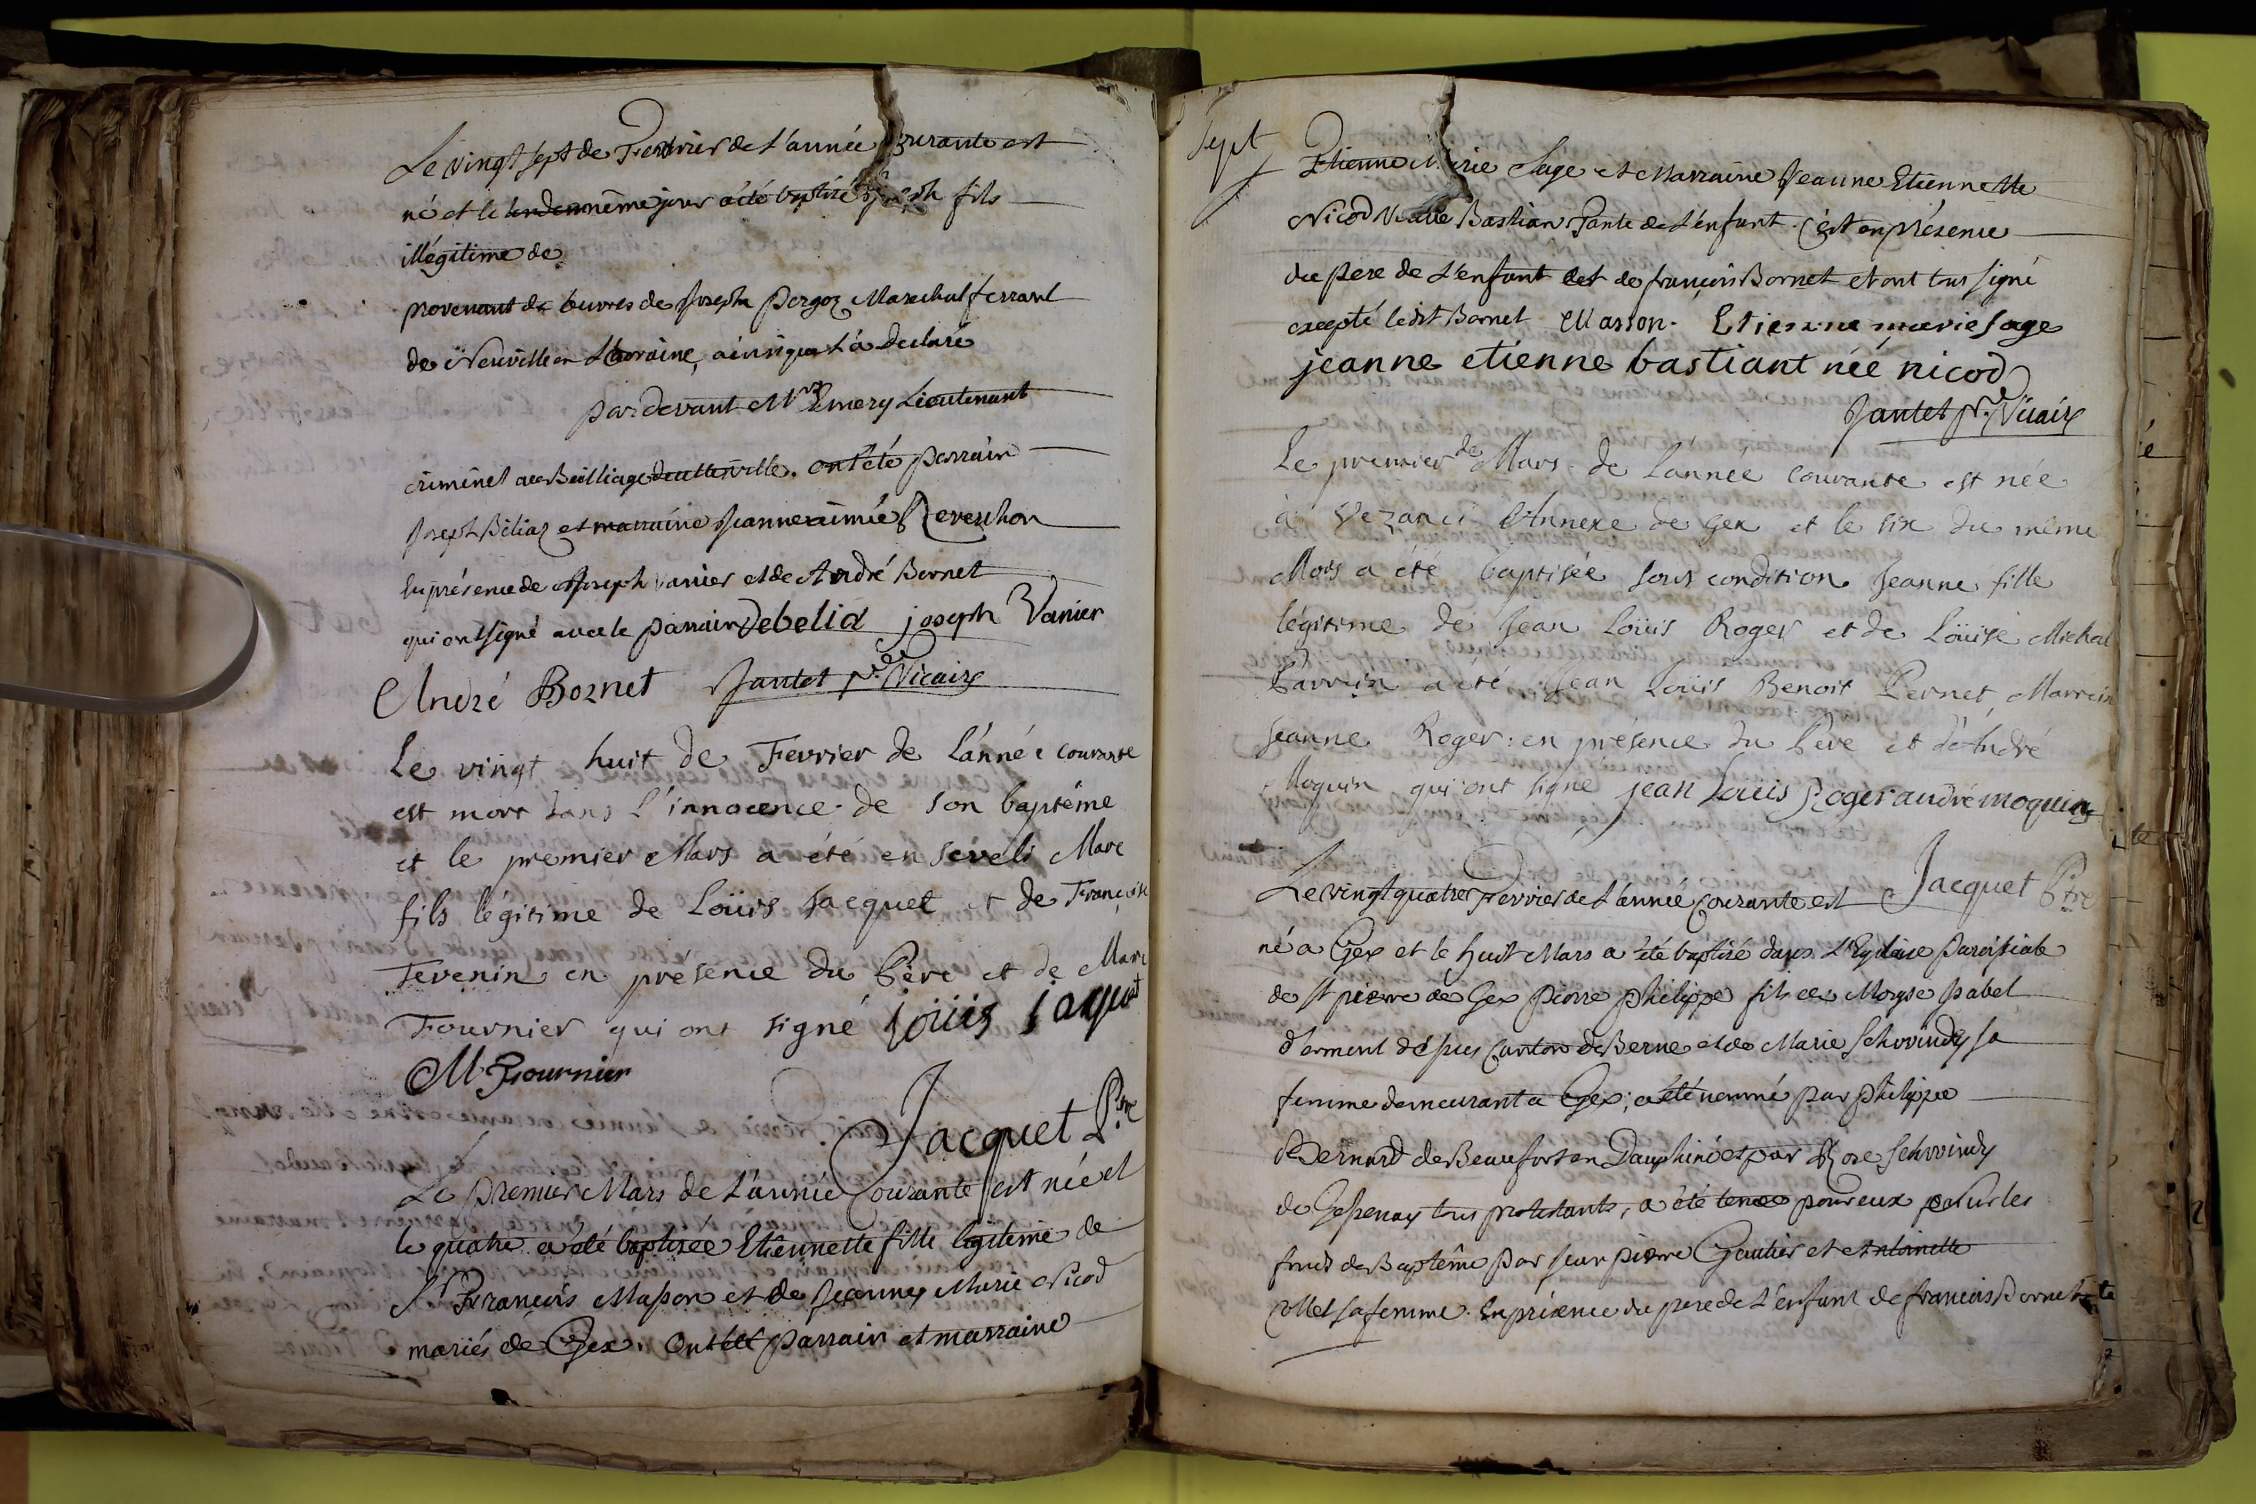 Le vingt sept de Fevrier de L'année courante est
né et le même jour a été baptisé Joseph fils
illégitime de
provenant des œuvres de Joseph pergoz Marechal ferrant
de Neuville en Lhoraine, ainsi que L'a declaré
par devant Mr Emery Lieutenant
criminel au Bailliage. ont été parrain
Joseph Béliaz et marraine Jeanne aimée Reverchon
En présence de Joseph vanier et de André Bornet
qui ont signé avec le parrain Debelia joseph Vanier
André Boznet Jantet pre Vicaire
Le vingt huit de Fevrier de l'année courante
est mort dans l'innocence de son baptême
et le premier Mars a été en séveli Marc
fils légitime de Loüis Jacquet et de Françoise
Tevenin en présence du Père et de Marc
Fournier qui ont signé loüis jaquet
M Fournier
Jacquet Ptre
Le premier Mars de L'année Courante est née et
le quatre a été baptisée Etiennette fille légitime de
Sr François Masson et de Jeanne Marie Nicod
mariés de Gex. Ont été parrain et marraine
Sept
Etienne Marie Sage et Marraine Jeanne Etiennette
Nicod Veuve Bastian Tante de L'enfant. C'est en présence
du pere de L'enfant et de françois Bornet et ont tous signé
excepté ledit Bornet Masson. Etienne marie sage
jeanne etienne bastiant née nicod
Jantet pr. Vicaire
Le premier de Mars de l'année courante est née
à Vezanci Annexe de Gex et le six du même
Mois a été baptisée sous condition Jeanne fille
légitime de Jean Loüis Roger et de Loüise Michal
Parrein a été Jean Loüis Benoit Pernet, Marrein
Jeanne Roger: en présence du Père et d'André
Moquin qui ont signé jean Louis Roger andré moquin
Jacquet Ptre
Le vingt quatre Fevrier de L'année Courante est
né a Gex et le huit Mars a été baptisé dans L'Eglise paroissiale
de St pierre de Gex pierre philippe fils de Moyse
canton de Berne et de Marie Schwindy sa
femme demeurant a Gex; a été nommé par philippe
Bernard de Beaufort en Dauphiné et par Rose Schwindy
de Gessenay tous protestants, a été tenu pour eux sur les
fonds de Baptême par Jean pierre Gautier et Antoinette
sa femme. En présence du pere de L'enfant de francois Bornet